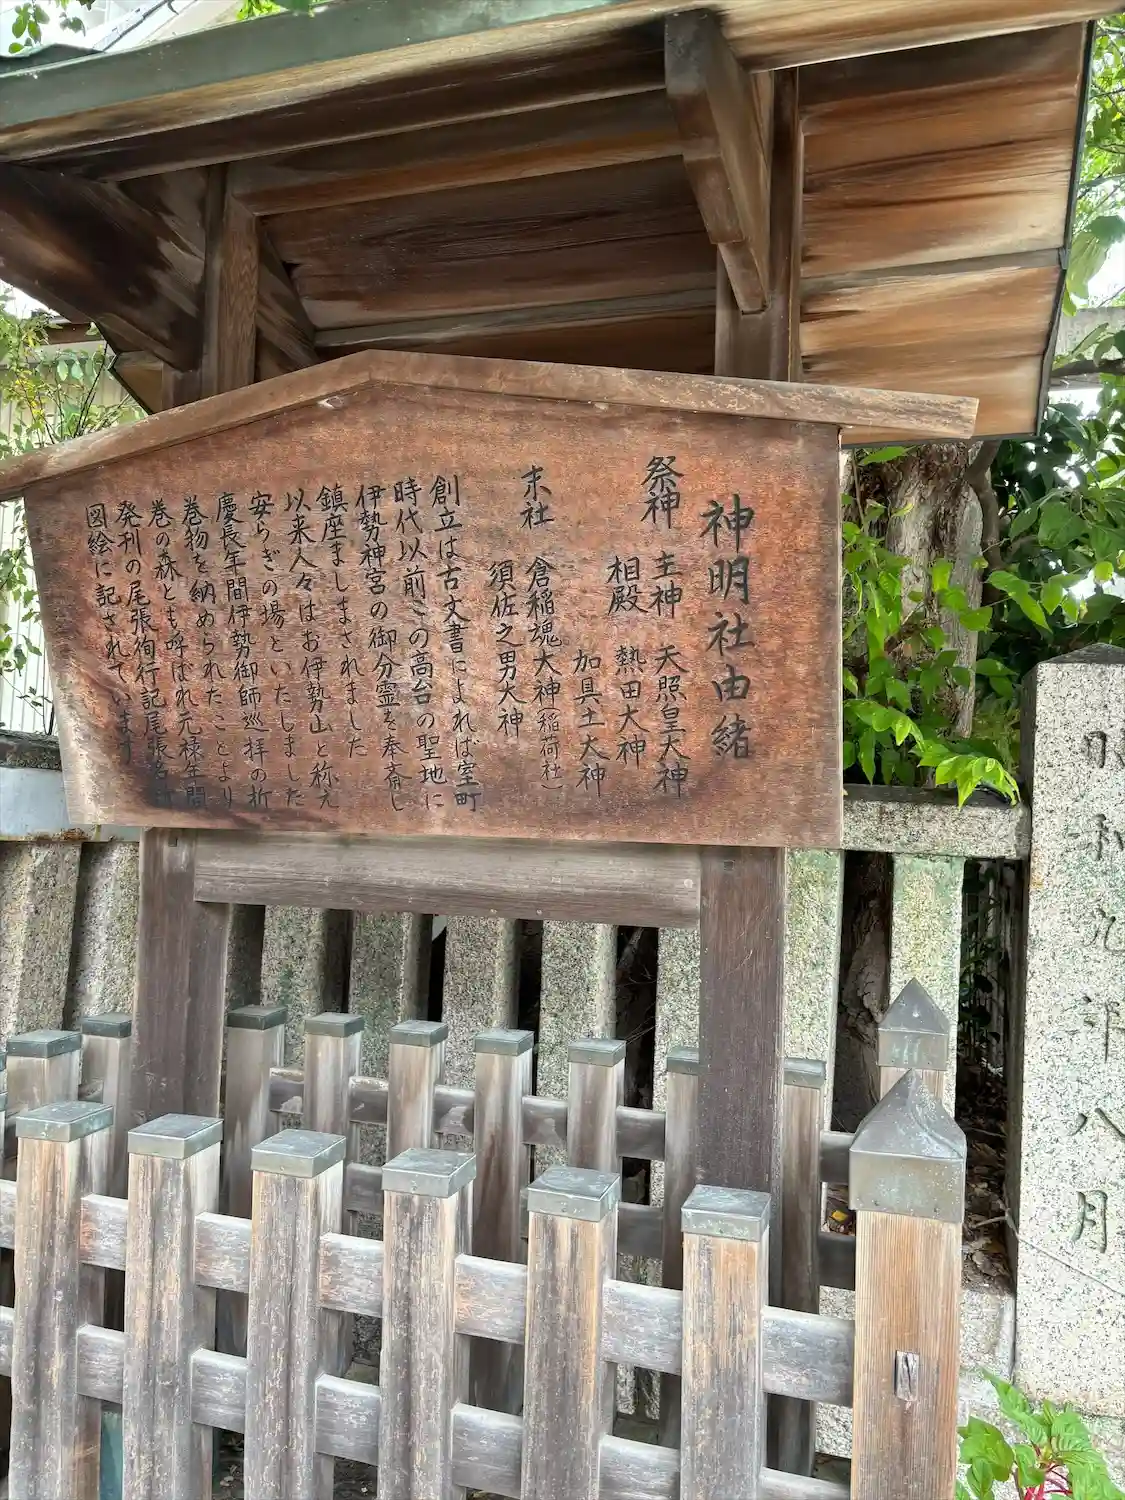 神明社由緒
祭神 主神 天照皇大神
相殿 熱田大神
加具土大神
末社 倉稲魂大神(稲荷社)
須佐之男大神
創立は古文書によれば室町
時代以前この高台の聖地に
伊勢神宮の御分霊を奉斎し
鎮座ましまされました
以来人々はお伊勢山と称え
安らぎの場といたしました
慶長年間伊勢御師巡拝の折
巻物を納められたことより
巻の森とも呼ばれ元禄年間
発刊の尾張徇行記尾張名所
図絵に記されています
昭和九年八月